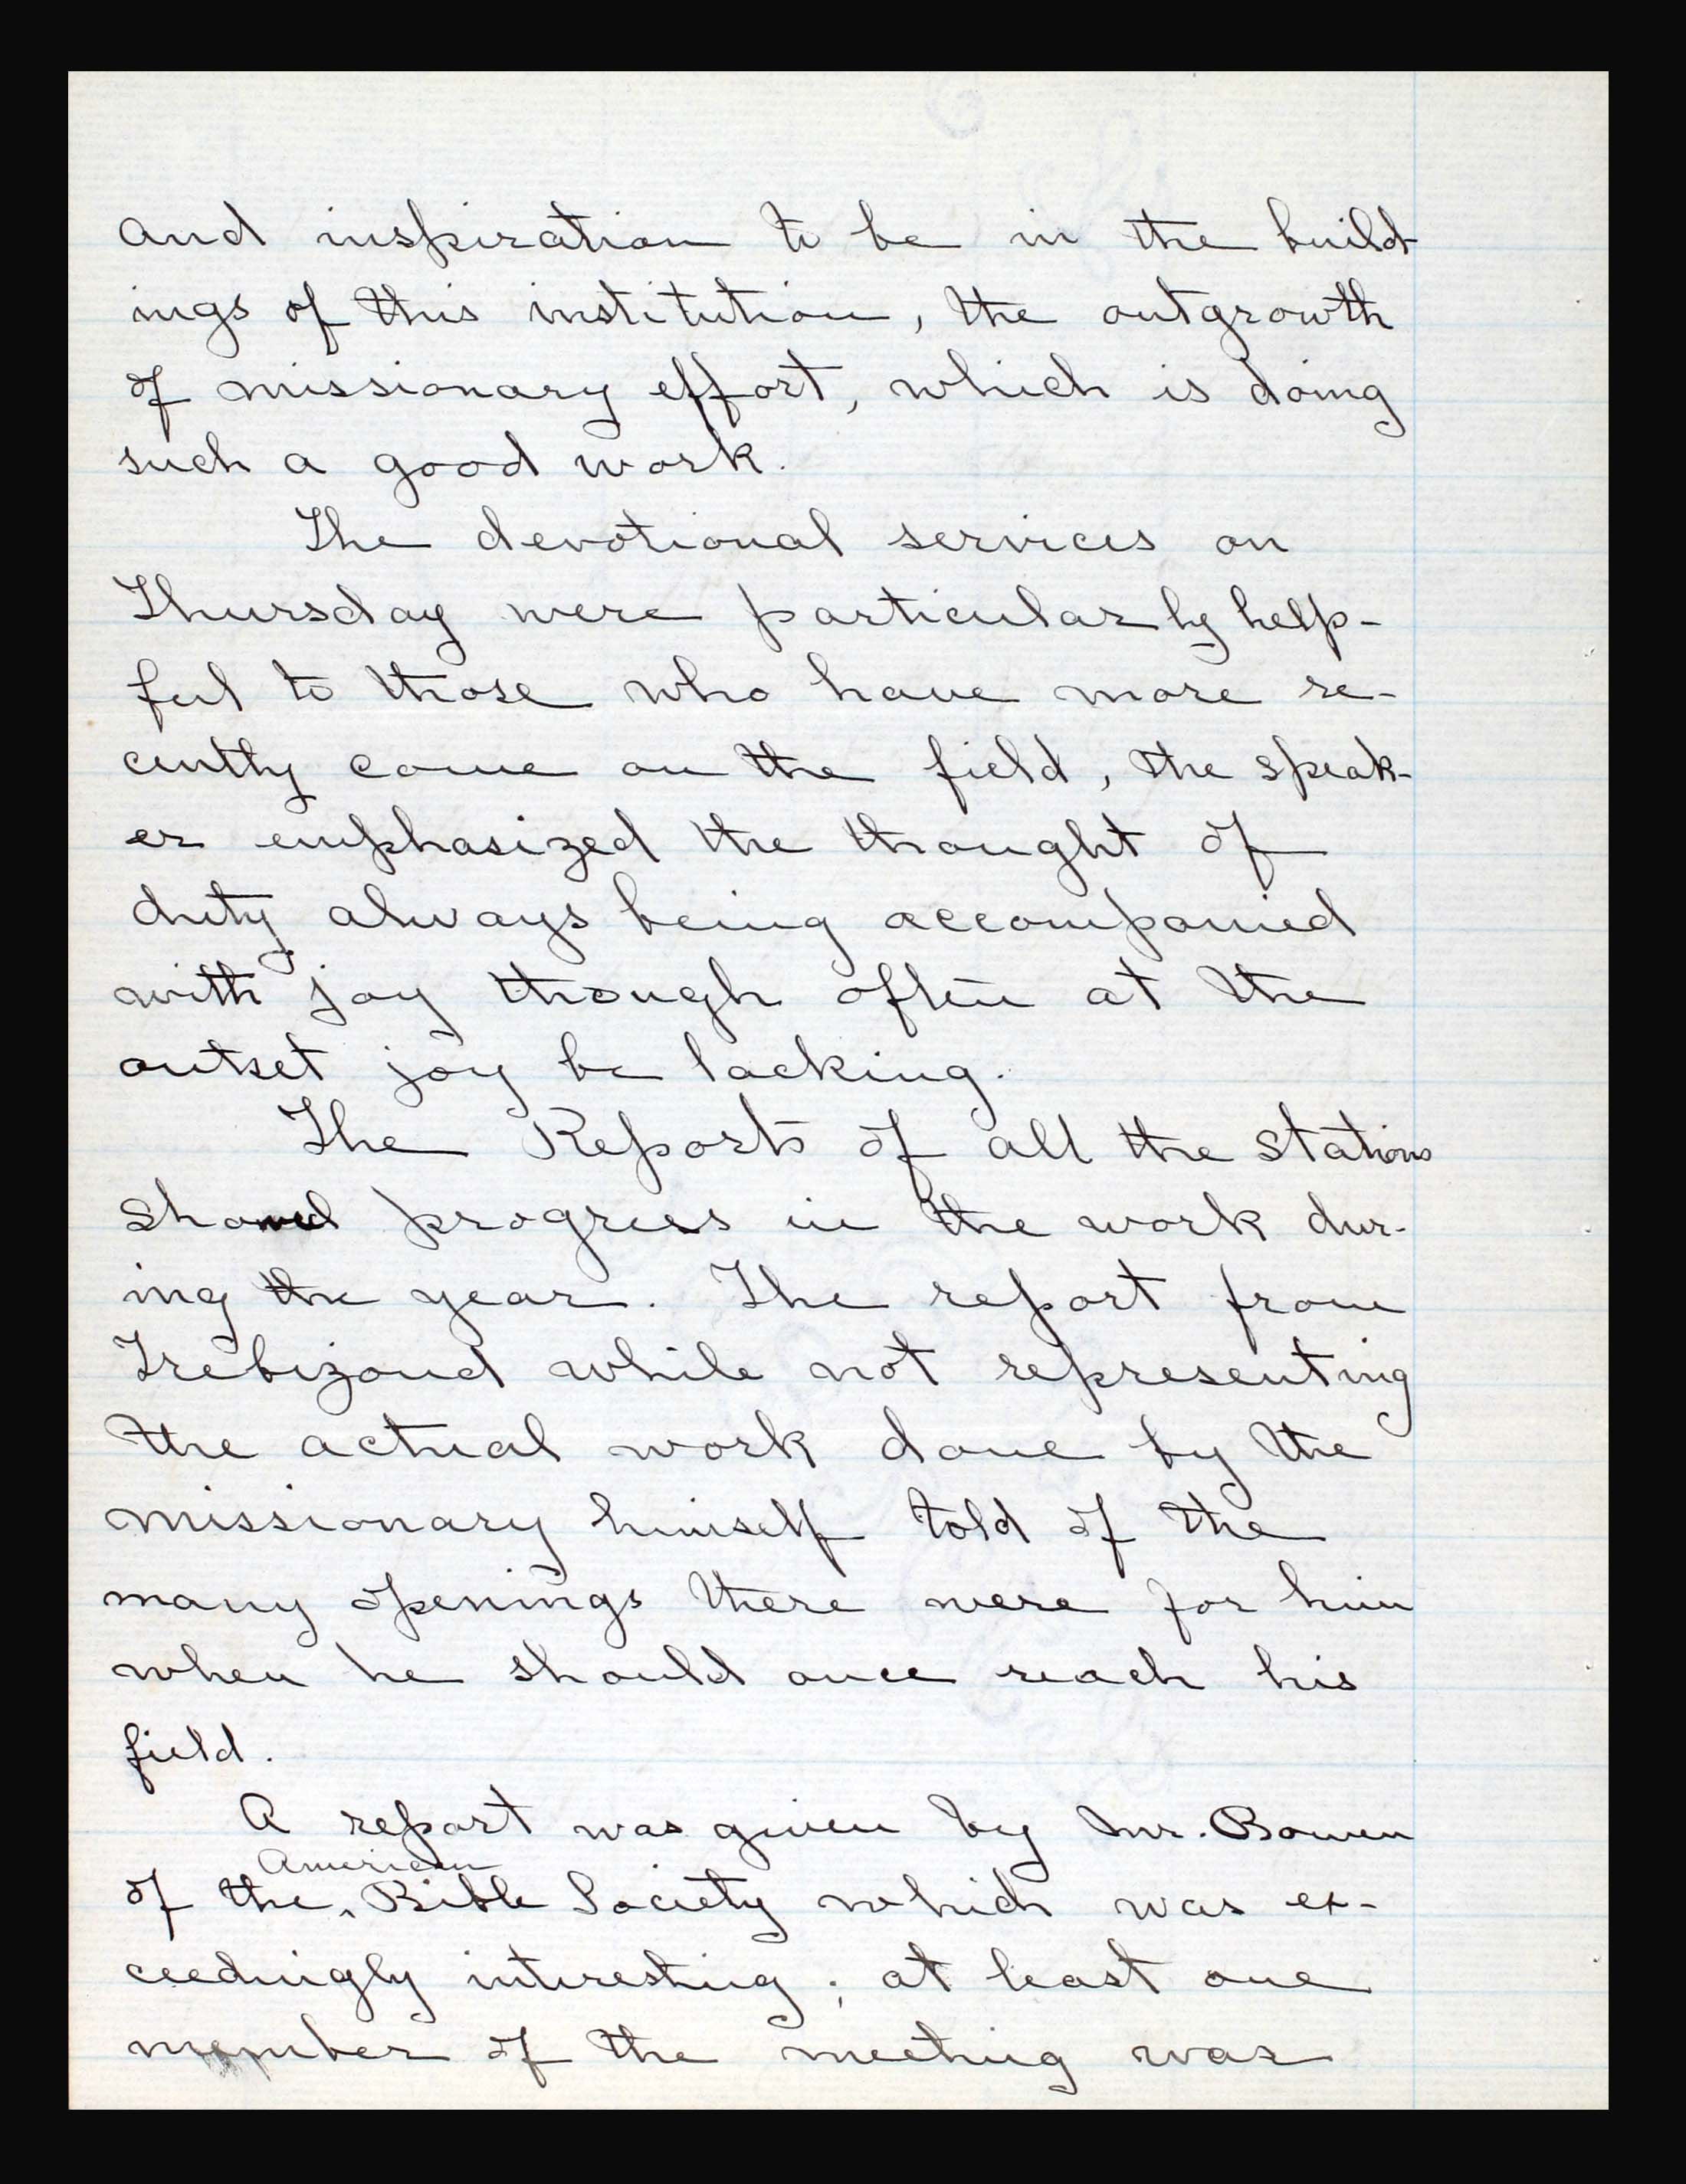 and inspiration to be in the build-
ings of this institution, the outgrowth
of missionary effort, which is doing
such a good work.
The devotional services on
Thursday were particularly help-
ful to those who have more re-
cently come on the field, the speak-
er emphasized the thought of
duty always being accompanied
with joy though often at the
outset joy be lacking.
The Reports of all the stations
showed progress in the work dur-
ing the year. The report from
Trebizond while not representing
the actual work done by the
missionary himself told of the
many openings there were for him
when he should once reach his
field.
A report was given by Mr. Bowen
American
of the ‸ Bible Society which was ex-
ceedingly interesting; at least one
member of the meeting was